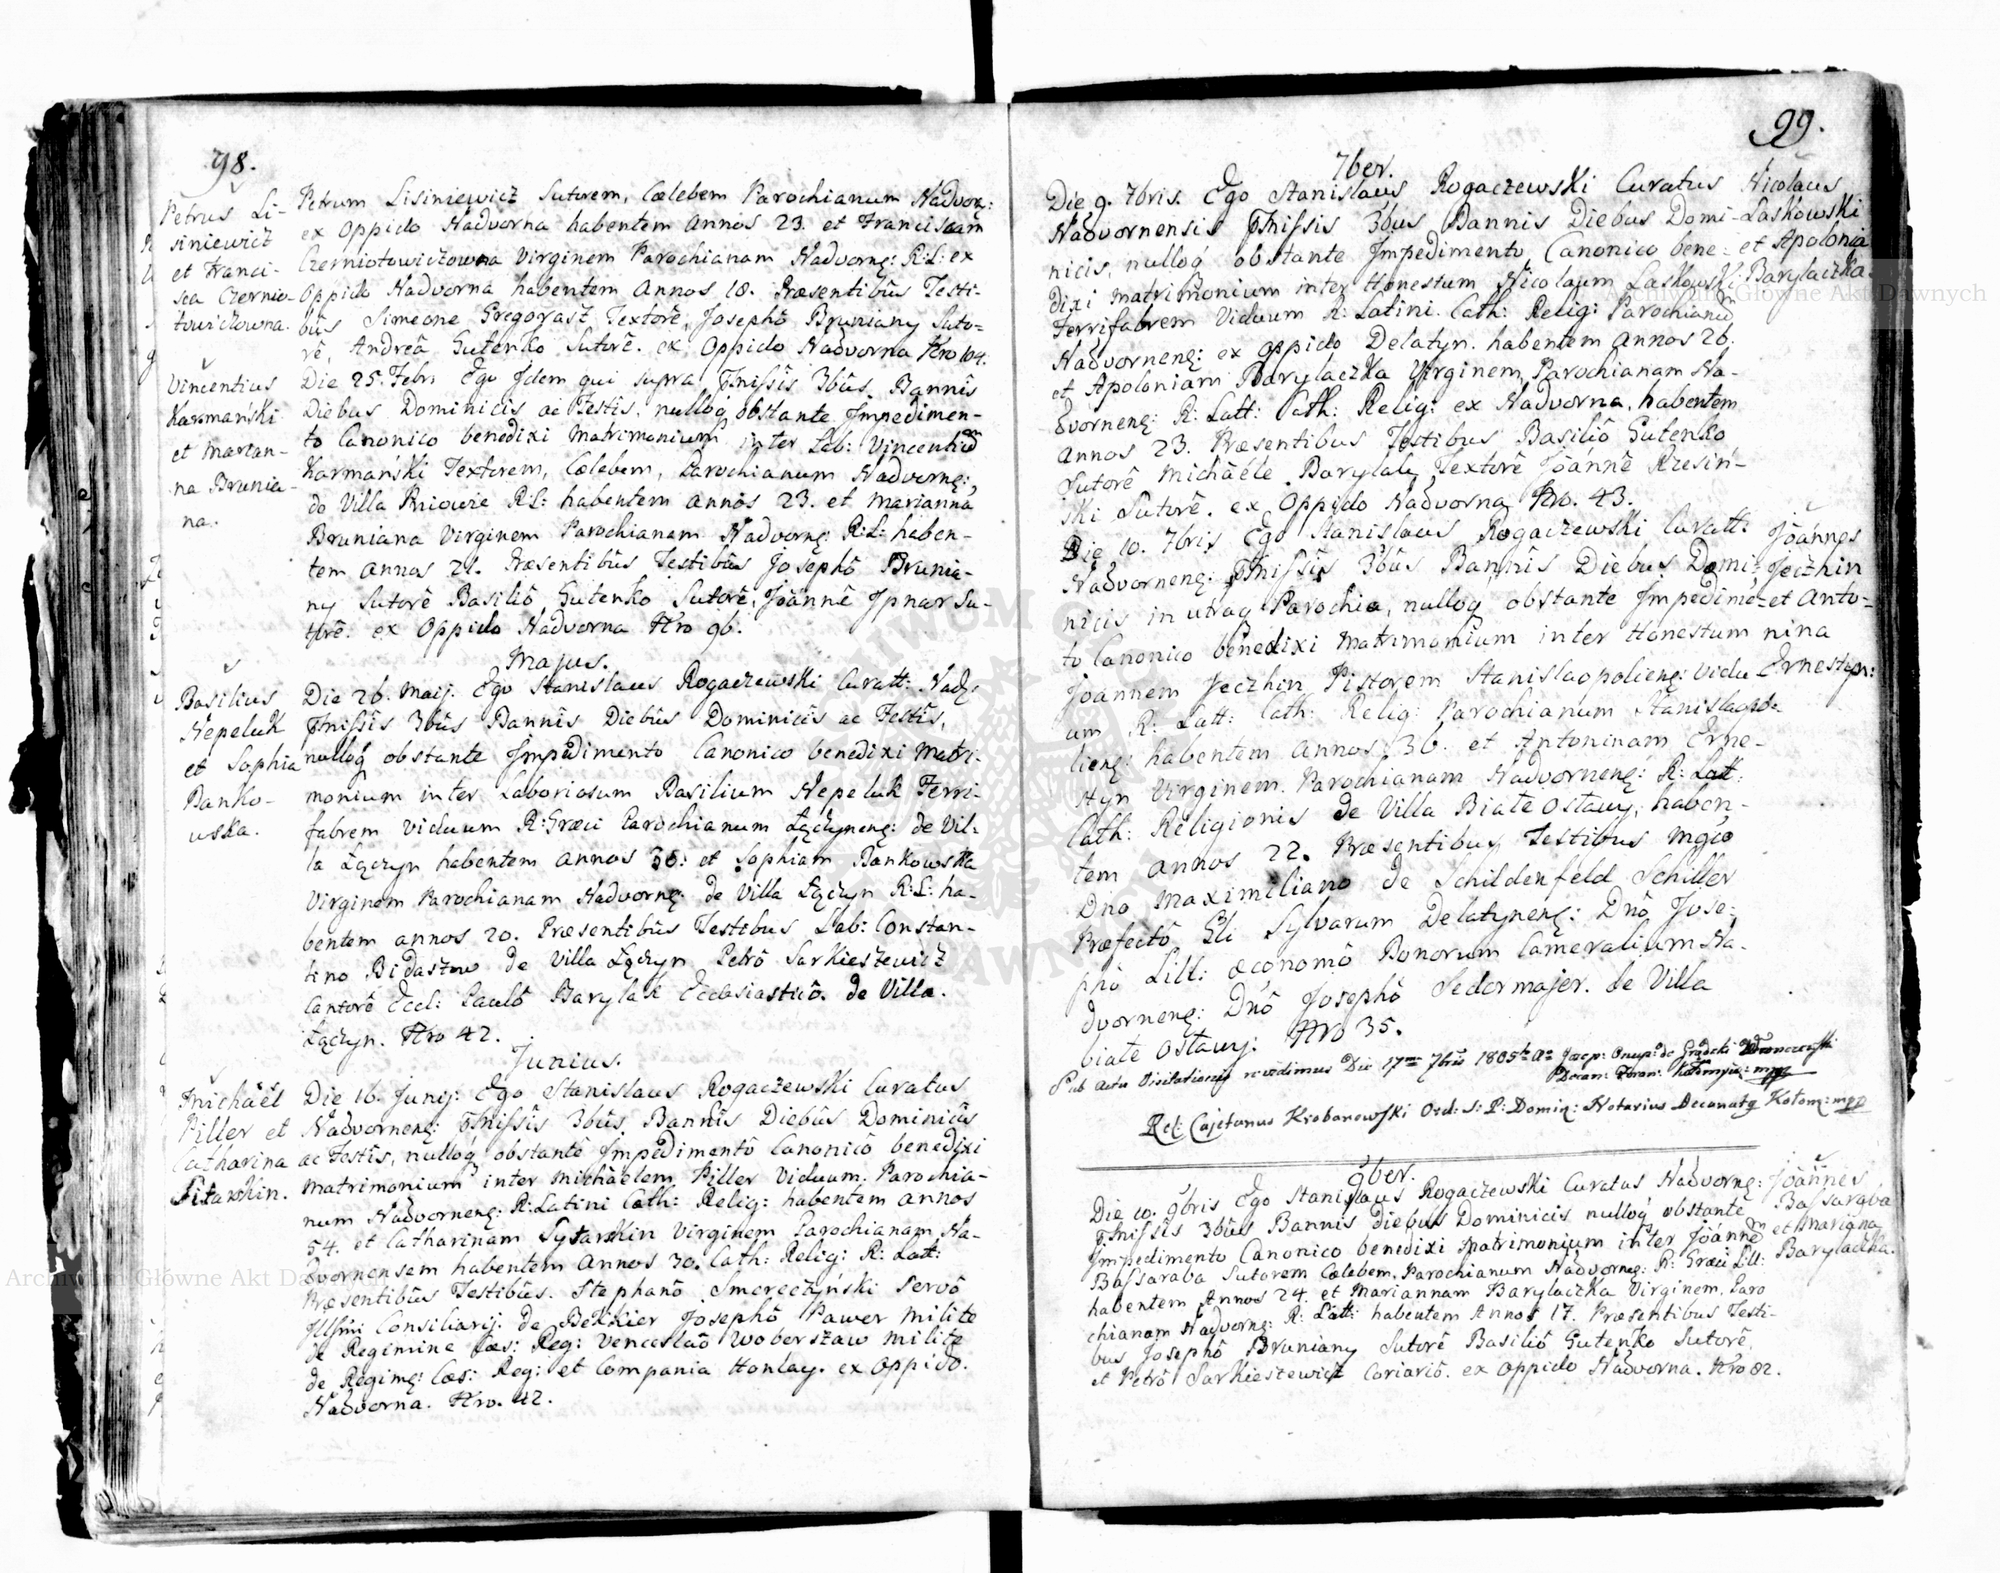 98.
Petrus Li-
siniewicz
et Franci-
sca Czernio-
towiczowna.
Petrum Lisiniewicz Sutorem, Cælebem Parochianum Nadvor:
ex Oppido Nadvorna habentem Annos 23. et Franciscam
Czerniotowiczowna Virginem Parochianam Nadvornę: R:L: ex
Oppido Nadvorna habentem Annos 18. Præsentibûs Testi-
bûs Simeone Gregorasz Textorê, Josephô Bruniany Suto-
rê, Andreâ Gutenko Sutorê. ex Oppido Nadvorna Nro 104.
Vincentius
Karmański
et Marian-
na Brunia-
na.
Die 25. Febr. Ego Idem qui supra, Pmissis 3bûs Bannîs
Diebus Dominicis ac Festis, nulloq obstante Impedimen-
to Canonico benedixi Matrimonium inter Lab: Vincentiũ
Karmański Textorem, Cælebem, Parochianum Nadvornę:,
de Villa Pniowie R:L: habentem Annos 23. et Marianna
Bruniana Virginem Parochianam Nadvornę: R:L: haben-
tem Annos 21. Præsentibûs Testibûs Josephô Brunia-
ny Sutorê Basiliô Gutenko Sutorê, Joanne Ipnar Su-
torê. ex Oppido Nadvorna Nro 96.
Majus.
Basilius
Nepeluk
et Sophia
Banko-
wska.
Die 26. Maij. Ego Stanislaus Rogaczewski Curatt: Nadę:
Pmissîs 3bûs Bannîs Diebûs Dominicîs ac Festîs,
nulloq obstante Impedimento Canonico benedixi Matri-
monium inter Laboriosum Basilium Nepeluk Ferri-
fabrem Viduum R:Græci Parochianum Łączynenę: de Vil-
la Łączyn habentem Annos 36: et Sophiam Bankowska
Virginem Parochianam Nadvornę: de Villa Łączyn R:L: ha-
bentem annos 20. Præsentibûs Testibus Lab: Constan-
tino Bidaszow de Villa Łączyn Petrô Sarkieszewicz
Cantorê Eccl: Paulô Barylak Ecclesiasticô. de Villa.
Łączyn. Nro 42.
Junius.
Michäel
Piller et
Catharina
Sitarskin.
Die 16. Junij: Ego Stanislaus Rogaczewski Curatus
Nadvornenę: Pmissîs 3bûs, Bannîs Diebûs Dominicîs
ac Festîs, nulloq obstantê Impedimentô Canonicô benedixi
Matrimonium inter Michäelem Piller Viduum, Parochia-
num Nadvornenę: R:Latini Cath: Relig: habentem Annos
54. et Catharinam Sytarskin Virginem Parochianam Na-
dvornensem habentem Annos 30. Cath: Relig: R: Latt:
Præsentibûs Testibûs. Stephanô Smereczyński Servô
Illsmi Consiliarij: de Bekkier Josephô Pawer Milite
de Regimine Cæs: Reg: Venceslaô Woberszaw Milite
de Regimę: Cæs: Reg: et Compania Honlay. ex Oppido.
Nadvorna. Nro. 42.
99.
7ber.
Die 9. 7bris. Ego Stanislaus Rogaczewski Curatus
Nadvornensis Pmissis 3bus Bannis Diebus Domi-
nicis, nulloq obstante Impedimento, Canonico bene-
dixi Matrimonium inter Honestum Nicolaum Laskowski
Ferrifabrem Viduum R: Latini. Cath: Relig: Parochianũ
Nadvornenę: ex Oppido Delatyn. habentem Annos 26.
et Apoloniam Barylaczka Virginem, Parochianam Na-
dvornenę: R: Latt: Cath: Relig: ex Nadvorna, habentem
Annos 23. Præsentibus Testibus Basiliô Gutenko
Sutorê Michäele Barylak, Textorê Joánnê Rzesiń-
ski Sutorê. ex Oppido Nadvorna Nro. 43.
Nicolaus
Laskowski
et Apolonia
Barylaczka.
Die 10. 7bris Ego Stanislaus Rogaczewski Curatt:
Nadvornenę: Pmissîs 3bûs Bannîs Diebus Domi-
nicis in utraq Parochia, nulloq obstante Impedimẽ-
to Canonico benedixi Matrimonium inter Honestum
Joannem Jeczhin Pistorem Stanislaopolienę: Vidu-
um R: Latt: Cath: Relig: Parochianum Stanislaopo-
lienę: habentem Annos 36. et Antoninam Erne-
styn Virginem. Parochianam Nadvornenę: R: Latt:
Cath: Religionis de Villa Białe Osławy, haben-
tem Annos 22. Præsentibus Testibus Mgco
Dno Maximiliano de Schildenfeld Schiller
Præfectô Sylvarum Delatynenę: Dnô Jose-
phô Lill: Œconomô Bonorum Cameralium Na-
dvornenę: Dnô Josephô Sedermajer. de Villa
białe Osławy: Nro 35.
Joánnes
Jeczhin
et Anto-
nina
Ernestyn:
Sub Actu Visitationis revidimus Die 17ma 7bris 1805to Ao
Decan: Foran: Kołomyię: mpp
Rel: Cajetanus Krobanowski Ord: S: P: Dominę: Notarius Decanatę Kołomę: mpp
9ber.
Die 10. 9bris Ego Stanislaus Rogaczewski Curatus Nadvornę:
Pmissîs 3bûs Bannis diebus Dominicis nulloq obstante
Impedimento Canonico benedixi Matrimonium inter Joánnem
Bassaraba Sutorem Cælebem. Parochianum Nadvornę: R: Græci Lill:
habentem Annos 24. et Mariannam Barylaczka Virginem. Paro
chianam Nadvornę: R: Latt: habentem Annos 17. Præsentibus Testi-
bus Josephô Bruniany Sutorê Basiliô Gutenko Sutorê,
et Petrô Sarkieszewicz Coriariô. ex Oppido Nadvorna. Nro 82.
Joánnes
Bassaraba
et Marianna
Barylaczka.
Archiwum Główne Akt Dawnych
Archiwum Główne Akt Dawnych